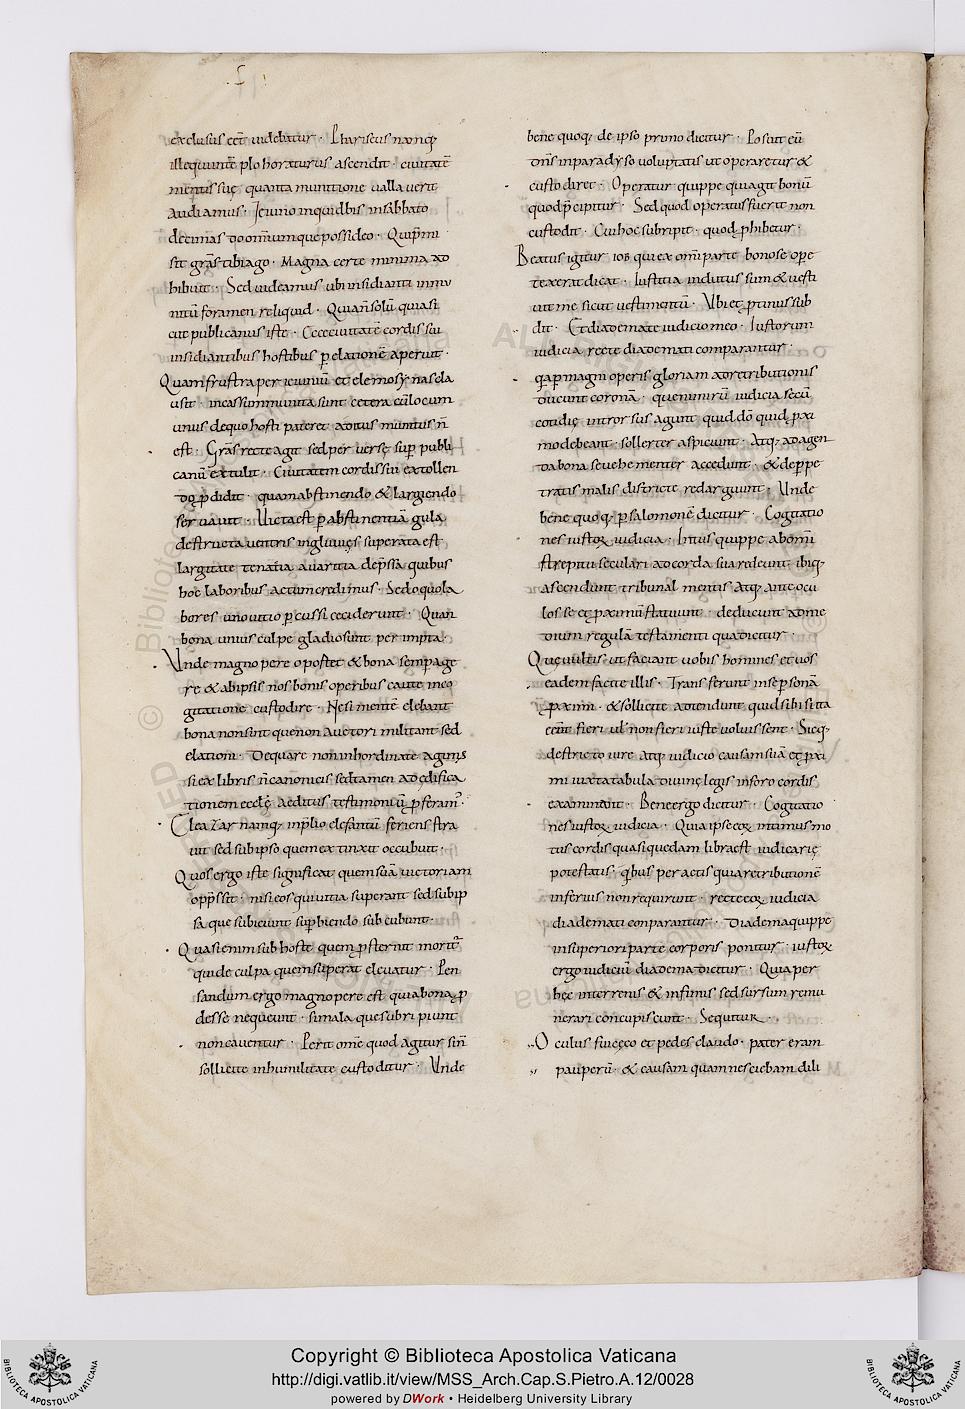 exclusus eēt uidebatur · Phariseus namq;
ille qui intē plo horaturus ascendit · ciuitatē
mentis suę quanta munitione uallauerit
audiamus · Ieiuno inquid bis in sabbato
decimas do omnium que possideo · Qui p̄mi
sit grās tibi ago · magna certe munimina ad
hibuit · Sed uideamus ubi insidianti inimi
nitū foramen reliquid · Quia n̄ solū quia si
cut publicanus iste · Ecce ciuitatē cordis sui
insidiantibus hostibus p elationē aperuit ·
Quam frustra per ieiuniū et elemosynas cla
usit · incassum munita sunt cetera cū locum
unus de quo hosti pateret aditus munitus n̄
est · Grās recte agit sed per uersę sup publi
canū extulit · Ciuitatem cordis sui extollen
do pdidit · quam abstinendo & largiendo
seruauit · Victa est p abstinentiā gula
destructa uentris ingluuies superata est
largitate tenatia auaritia dep̄ssa quibus
hoc laboribus actum credimus · Sed o quo la
bores uno uitio p cussi ceciderunt · Quan
bona unius culpe gladio sunt per impta ·
Unde magno pere oportet & bona semp age
re & ab ipsis nos bonis operibus caute in co
gitatione custodire · Ne si mentē eleuant
bona non sint que non auctori militant sed
elationi · De qua re non inhordinate agimus
si ex libris n̄ canonicis sed tamen ad ędifica
tionem ecclę aeditus testimoniū pferam ·
Eleazar namq; in plio elefantū feriens stra
uit sed sub ipso quem extinxit occubuit ·
Quos ergo iste significat quem sua uictoriam
opp̄ssit · nisi eos qui uitia superant sed sub ip
sa que subiciunt supbiendo subcubunt ·
Quasi enim sub hoste quem psternit morit
qui de culpa quem superat eleuatur · Pen
sandum ergo magno pere est quia bona p
desse nequeunt · si mala que subripiunt
non cauentur · Perit omē quod agitur si n̄
sollicite in humilitate custoditur · Unde
bene quoq; de ipso primo dicitur · Posuit eū
dn̄s in paradyso uoluptatis ut operaretur &
custodiret · Operatur quippe qui agit bonū
quod p̄cipitur · Sed quod operatus fuerit non
custodit · Cui hoc subripit · quod phibetur ·
Beatus igitur iob qui ex omī parte bono se ope
texerat dicat · Iustitia indutus sum & uesti
uit me sicut uestimentū · Ubi et ptinus sub
dit · Et diademate iudicio meo · Iustorum
iudicia recte diademati comparantur ·
q̄a p magni operis gloriam ad retributionis
ducunt coronā · que nimirū iudicia secū
cotidię introrsus agunt quid do quid pxi
mo debeant · sollerter aspiciunt · Atq; ad agen
da bona se uehementer accedunt · & de ppe
tratis malis districte redarguunt · Unde
bene quoq; p salomonē dicitur · Cogitatio
nes iustoꝝ iudicia · Intus quippe ab omī
strepitu seculari ad corda sua redeunt ibiq;
ascendunt tribunal mentis atq; ante ocu
los se et pximū statuunt · deducunt ad me
dium regulā testamenti qua dicitur ·
Quę uultis ut faciant uobis homines et uos
eadem facite illis · Transferunt in se psonā
pximi · & sollicite adtendunt quid sibi si ita
eēnt fieri ul non fieri iuste uoluissent · Sicq;
destricto iure atq; iudicio causam suā et pxi
mi iuxta tabula diuinę legis in foro cordis
examinant · Bene ergo dicitur · Cogitatio
nes iustoꝝ iudicia · Quia ipse eoꝝ intimus mo
tus cordis quasi quedam libra est iudicarię
potestatis · q̄bus per actis quia retributionē
inferius non requirunt · recte eoꝝ iudicia
diademati conparantur · Diadema quippe
in superiori parte corporis ponitur · iustoꝝ
ergo iudiciū diadema dicitur · Quia per
hęc in terrenis & infimis sed sursum remu
nerari concupiscunt · Sequitur ·
Oculus fui cęco et pedes claudo · pater eram
pauperū · & causam quam nesciebam dili
Copyright © Biblioteca Apostolica Vaticana
http://digi.vatlib.it/view/MSS_Arch.Cap.S.Pietro.A.12/0028
powered by DWork • Heidelberg University Library